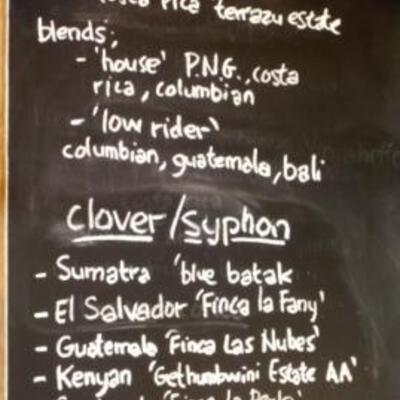 rica terrazu estate
blends;
- 'house' P.N.G., costa
rica, columbian
- 'low rider'
columbian, guatemala, bali
clover/syphon
- Sumatra 'blue batak
- El Salvador 'Finca la Fany'
- Guatemala 'Finca Las Nubes'
- Kenyan 'Gethumbwini Estate AA'